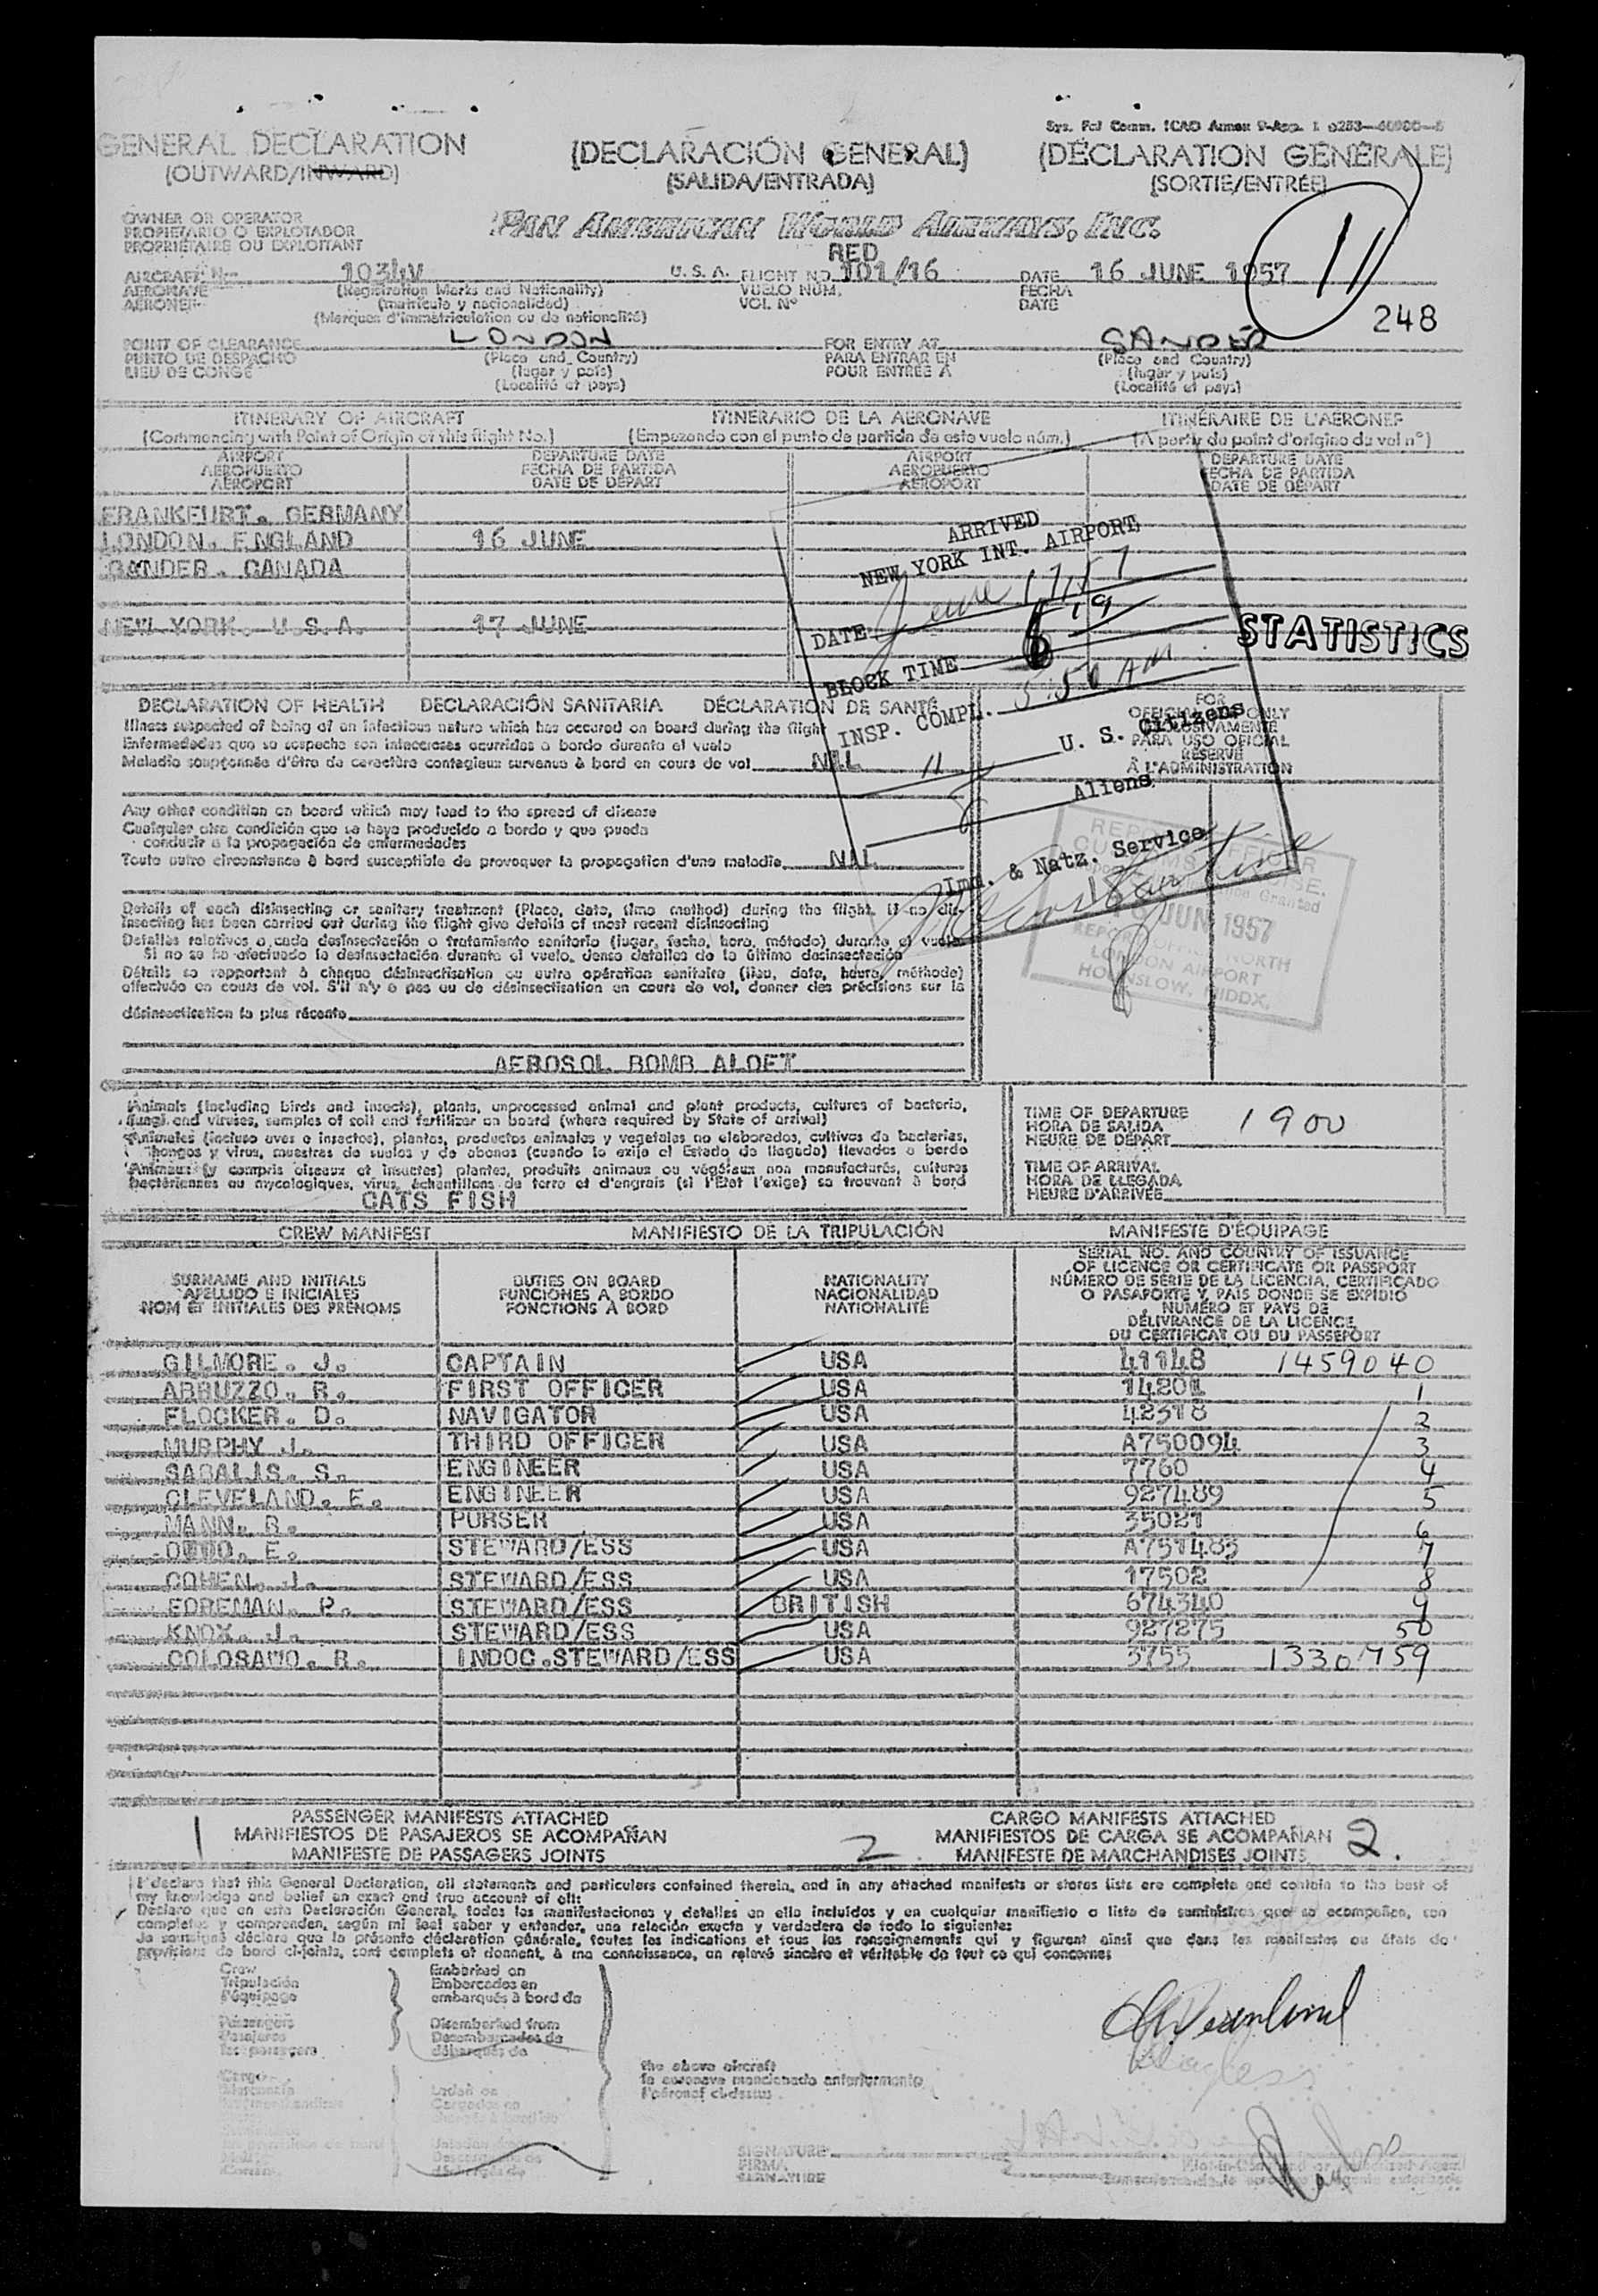 Sys. Fal Comm. ICAO Annex 9-App. 1
GENERAL DECLARATION (DECLARACIÓN GENERAL) (DÉCLARATION GÉNÉRALE)
(OUTWARD/INWARD) (SALIDA/ENTRADA) (SORTIE/ENTRÉE)
11
OWNER OR OPERATOR
PROPIETARIO O EXPLOTADOR
PROPRIÉTAIRE OU EXPLOITANT
PAN AMERICAN WORLD AIRWAYS, INC.
RED
AIRCRAFT N 1034V U. S. A. FLIGHT NO. 101/16 DATE 16 JUNE 1957
AERONAVE (Registration Marks and Nationality) VUELO NÚM. FECHA
AÉRONEF (matrícula y nacionalidad) VOL Nº DATE
(Marques d'immatriculation ou de nationalité)
248
POINT OF CLEARANCE LONDON FOR ENTRY AT GANDER
PUNTO DE DESPACHO (Place and Country) PARA ENTRAR EN (Place and Country)
LIEU DE CONGÉ (lugar y país) POUR ENTRÉE À (lugar y país)
(Localité et pays) (Localité et pays)
ITINERARY OF AIRCRAFT ITINERARIO DE LA AERONAVE ITINÉRAIRE DE L'AÉRONEF
(Commencing with Point of Origin of this flight No.) (Empezando con el punto de partida de este vuelo núm.) (A partir du point d'origine du vol nº)
AIRPORT DEPARTURE DATE AIRPORT DEPARTURE DATE
AEROPUERTO FECHA DE PARTIDA AEROPUERTO FECHA DE PARTIDA
AÉROPORT DATE DE DÉPART AÉROPORT DATE DE DÉPART
FRANKFURT. GERMANY
LONDON. ENGLAND 16 JUNE
GANDER. CANADA
NEW YORK. U.S.A. 17 JUNE
ARRIVED
NEW YORK INT. AIRPORT
DATE June 17/57
BLOCK TIME 619
INSP. COMPL. 5:50 AM
11 U. S. Citizens
8 Aliens
Imm. & Natz. Service
STATISTICS
DECLARATION OF HEALTH DECLARACIÓN SANITARIA DÉCLARATION DE SANTÉ
Illness suspected of being of an infectious nature which has occured on board during the flight
Enfermedades que se sospeche son infecciosas ocurridas a bordo durante el vuelo
Maladie soupçonnée d'être de caractère contagieux survenue à bord en cours de vol NIL
FOR
OFFICIAL USE ONLY
EXCLUSIVAMENTE
PARA USO OFICIAL
RÉSERVÉ
À L'ADMINISTRATION
Any other condition on board which may lead to the spread of disease
Cualquier otra condición que se haya producido a bordo y que pueda
conducir a la propagación de enfermedades
Toute autre circonstance à bord susceptible de provoquer la propagation d'une maladie NIL
16 JUN 1957
LONDON AIRPORT
HOUNSLOW, MIDDX.
Details of each disinsecting or sanitary treatment (Place, date, time method) during the flight, if no dis-
insecting has been carried out during the flight give details of most recent disinsecting
Detalles relativos a cada desinsectación o tratamiento sanitario (lugar, fecha, hora, método) durante el vuelo.
Si no se ha efectuado la desinsectación durante el vuelo, dense detalles de la última desinsectación
Détails se rapportant à chaque désinsectisation ou autre opération sanitaire (lieu, date, heure, méthode)
effectuée en cours de vol. S'il n'y a pas eu de désinsectisation en cours de vol, donner des précisions sur la
désinsectisation la plus récente
AEROSOL BOMB ALOFT
Animals (including birds and insects), plants, unprocessed animal and plant products, cultures of bacteria,
fungi and viruses, samples of soil and fertilizer on board (where required by State of arrival)
Animales (incluso aves e insectos), plantas, productos animales y vegetales no elaborados, cultivos de bacterias,
hongos y virus, muestras de suelos y de abonos (cuando lo exija el Estado de llegada) llevados a bordo
Animaux (y compris oiseaux et insectes) plantes, produits animaux ou végétaux non manufacturés, cultures
bactériennes ou mycologiques, virus, échantillons de terre et d'engrais (si l'État l'exige) se trouvant à bord
CATS FISH
TIME OF DEPARTURE
HORA DE SALIDA
HEURE DE DÉPART 1900
TIME OF ARRIVAL
HORA DE LLEGADA
HEURE D'ARRIVÉE
CREW MANIFEST MANIFIESTO DE LA TRIPULACIÓN MANIFESTE D'ÉQUIPAGE
SURNAME AND INITIALS
APELLIDO E INICIALES
NOM ET INITIALES DES PRÉNOMS
DUTIES ON BOARD
FUNCIONES A BORDO
FONCTIONS À BORD
NATIONALITY
NACIONALIDAD
NATIONALITÉ
SERIAL NO. AND COUNTRY OF ISSUANCE
OF LICENCE OR CERTIFICATE OR PASSPORT
NÚMERO DE SERIE DE LA LICENCIA, CERTIFICADO
O PASAPORTE Y PAÍS DONDE SE EXPIDIÓ
NUMÉRO ET PAYS DE
DÉLIVRANCE DE LA LICENCE
DU CERTIFICAT OU DU PASSEPORT
GILMORE. J. CAPTAIN USA 41148 1459040
ABRUZZO. R. FIRST OFFICER USA 14201 1
FLOCKER. D. NAVIGATOR USA 42318 2
MURPHY J. THIRD OFFICER USA A750094 3
SABALIS. S. ENGINEER USA 7760 4
CLEVELAND. E. ENGINEER USA 927489 5
MANN. R. PURSER USA 35021 6
OTTO. E. STEWARD/ESS USA A751483 7
COHEN. J. STEWARD/ESS USA 17502 8
FOREMAN. P. STEWARD/ESS BRITISH 674340 9
KNOX. J. STEWARD/ESS USA 927275 50
COLOSANO. R. INDOC.STEWARD/ESS USA 3755 1330759
PASSENGER MANIFESTS ATTACHED CARGO MANIFESTS ATTACHED
1 MANIFIESTOS DE PASAJEROS SE ACOMPAÑAN 2. MANIFIESTOS DE CARGA SE ACOMPAÑAN 2.
MANIFESTE DE PASSAGERS JOINTS MANIFESTE DE MARCHANDISES JOINTS
I declare that this General Declaration, all statements and particulars contained therein, and in any attached manifests or stores lists are complete and contain to the best of
my knowledge and belief an exact and true account of all:
Declaro que en esta Declaración General, todas las manifestaciones y detalles en ella incluidos y en cualquier manifiesto o lista de suministros que se acompañen, son
completos y comprenden, según mi leal saber y entender, una relación exacta y verdadera de todo lo siguiente:
Je soussigné déclare que la présente déclaration générale, toutes les indications et tous les renseignements qui y figurent ainsi que dans les manifestes ou états de
provisions de bord ci-joints, sont complets et donnent, à ma connaissance, un relevé sincère et véritable de tout ce qui concerne:
Crew Embarked on
Tripulación Embarcados en
l'équipage embarqués à bord de
Passengers Disembarked from
Pasajeros Desembarcados de
les passagers débarqués de
the above aircraft
la aeronave mencionada anteriormente
l'aéronef ci-dessus
Cargo
SIGNATURE
FIRMA
SIGNATURE